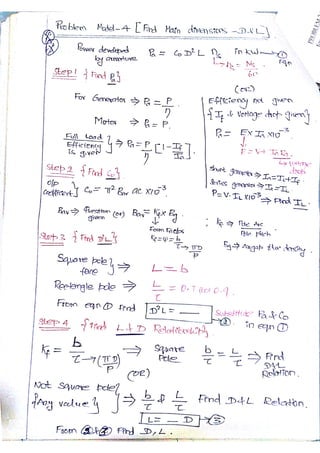 Problem Model-4 [Find Main dimensions - D & L]
Power developed by armature Pa = Co D² L ns in kW → ① eqn
→ ns = Ns/60
Step 1 { Find Pa }
(or)
For Generator ⇒ Pa = P/η
Motor ⇒ Pa = P.
Full Load Efficiency is given } ⇒ Pa = P/η [1 -
Efficiency not given
{ If & voltage drop given }
Pa = E × Ia × 10⁻³
Short generator ⇒ Ia = IL + If
Series generator ⇒ Ia = IL
P = V·IL × 10⁻³ → Find IL
Step 2 { Find Co }
o/p coefficient } Co = π² Bav ac × 10⁻³
Bav ⇒ given (or) Bav = Kf × Bg
Kf ⇒
Form factor
Kf = Ψ = b/τ → πD/P
Step 3 { Find D²L }
Square pole face } ⇒ L = b
Rectangle pole ⇒ L/τ = 0.7 to 0.9.
From eqn ① Find D²L = ____ ②
Substitute Pa & Co in eqn ①
Step 4 { Find L & D Relationship
Kf = b/τ → (πD/P) ⇒ Square Pole b/τ = L/τ ⇒ Find D & L Relation.
(OR)
Not Square pole }
{ Any value } ⇒ b/τ & L/τ Find D & L Relation.
L = __ D → ③
From ② & ③ Find D, L.